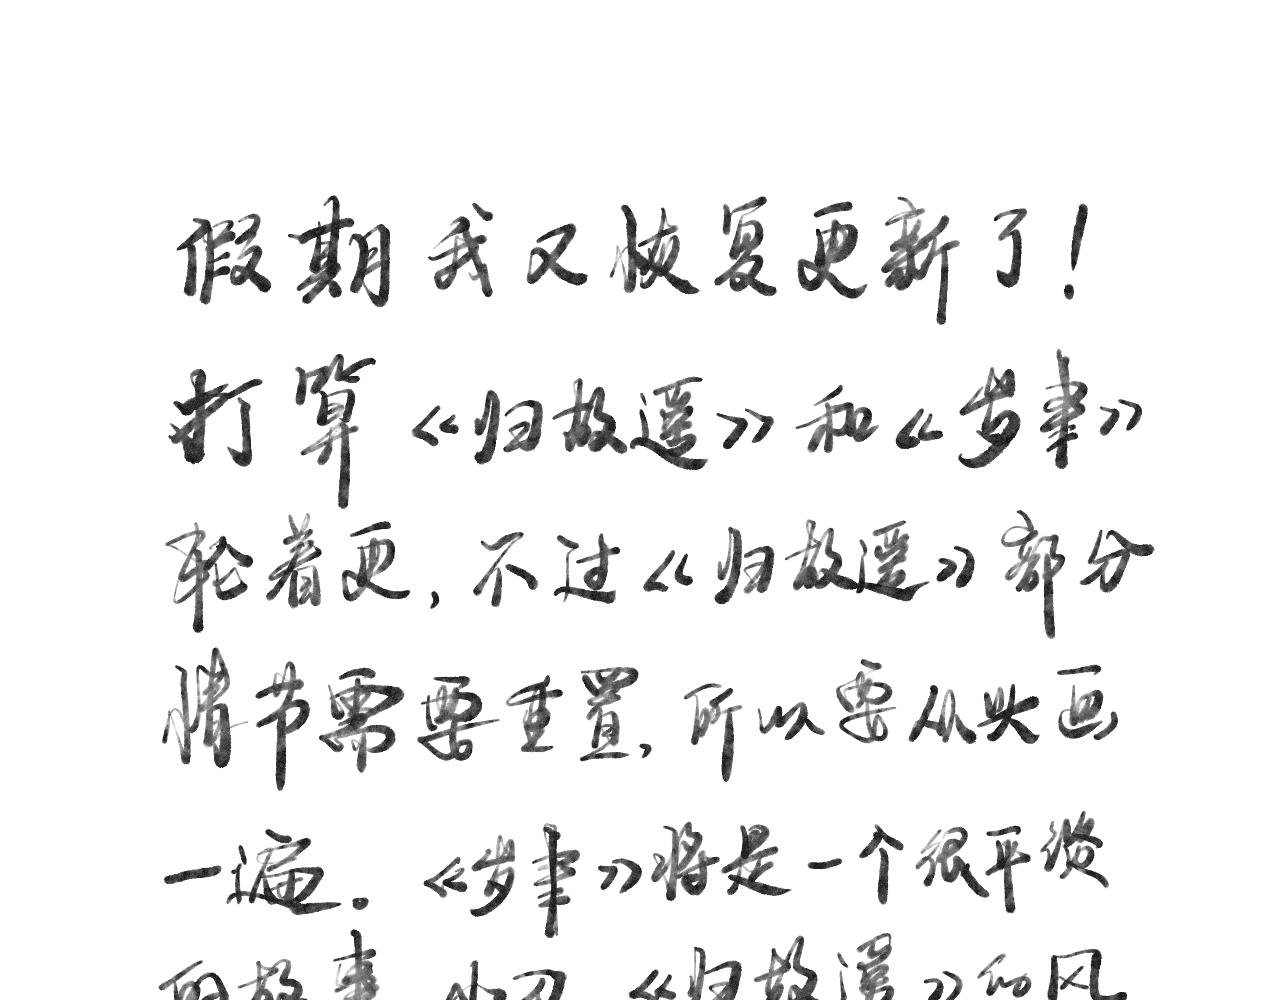 假期我又恢复更新了!
打算《归故遥》和《岁聿》
轮着更,不过《归故遥》部分
情节需要重置,所以要从头画
一遍。《岁聿》将是一个很平缓
的故事,《归故遥》的风